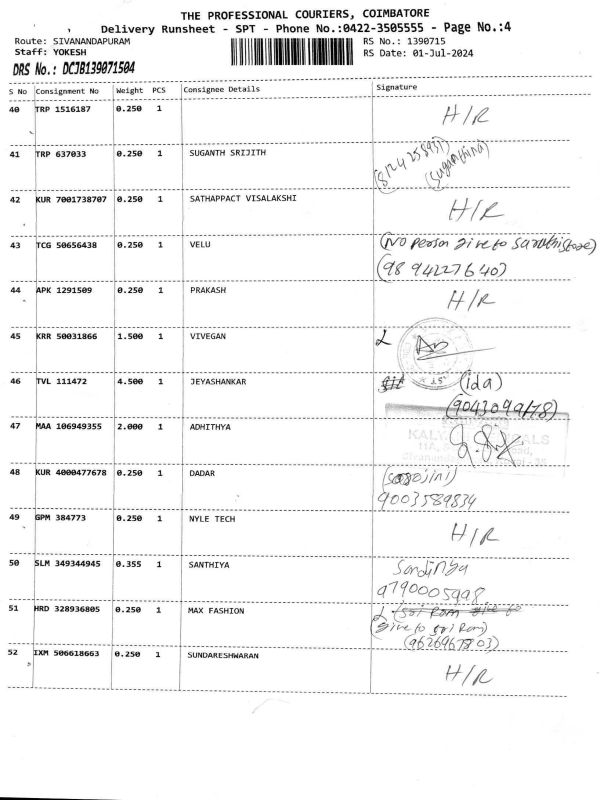 THE PROFESSIONAL COURIERS, COIMBATORE
Delivery Runsheet - SPT - Phone No.:0422-3505555 - Page No.:4
Route: SIVANANDAPURAM RS No.: 1390715
Staff: YOKESH RS Date: 01-Jul-2024
DRS No.: DCJB139071504
S No Consignment No Weight PCS Consignee Details Signature
40 TRP 1516187 0.250 1 H/R
41 TRP 637033 0.250 1 SUGANTH SRIJITH
(8124258931)
42 KUR 7001738707 0.250 1 SATHAPPACT VISALAKSHI H/R
43 TCG 50656438 0.250 1 VELU (No person give to
(9894227640)
44 APK 1291509 0.250 1 PRAKASH H/R
45 KRR 50031866 1.500 1 VIVEGAN
46 TVL 111472 4.500 1 JEYASHANKAR (ida)
47 MAA 106949355 2.000 1 ADHITHYA
48 KUR 4000477678 0.250 1 DADAR (sarojini)
9003589834
49 GPM 384773 0.250 1 NYLE TECH H/R
50 SLM 349344945 0.355 1 SANTHIYA
9790005998
51 HRD 328936805 0.250 1 MAX FASHION
(give to sri Ram)
(9626967803)
52 IXM 506618663 0.250 1 SUNDARESHWARAN H/R